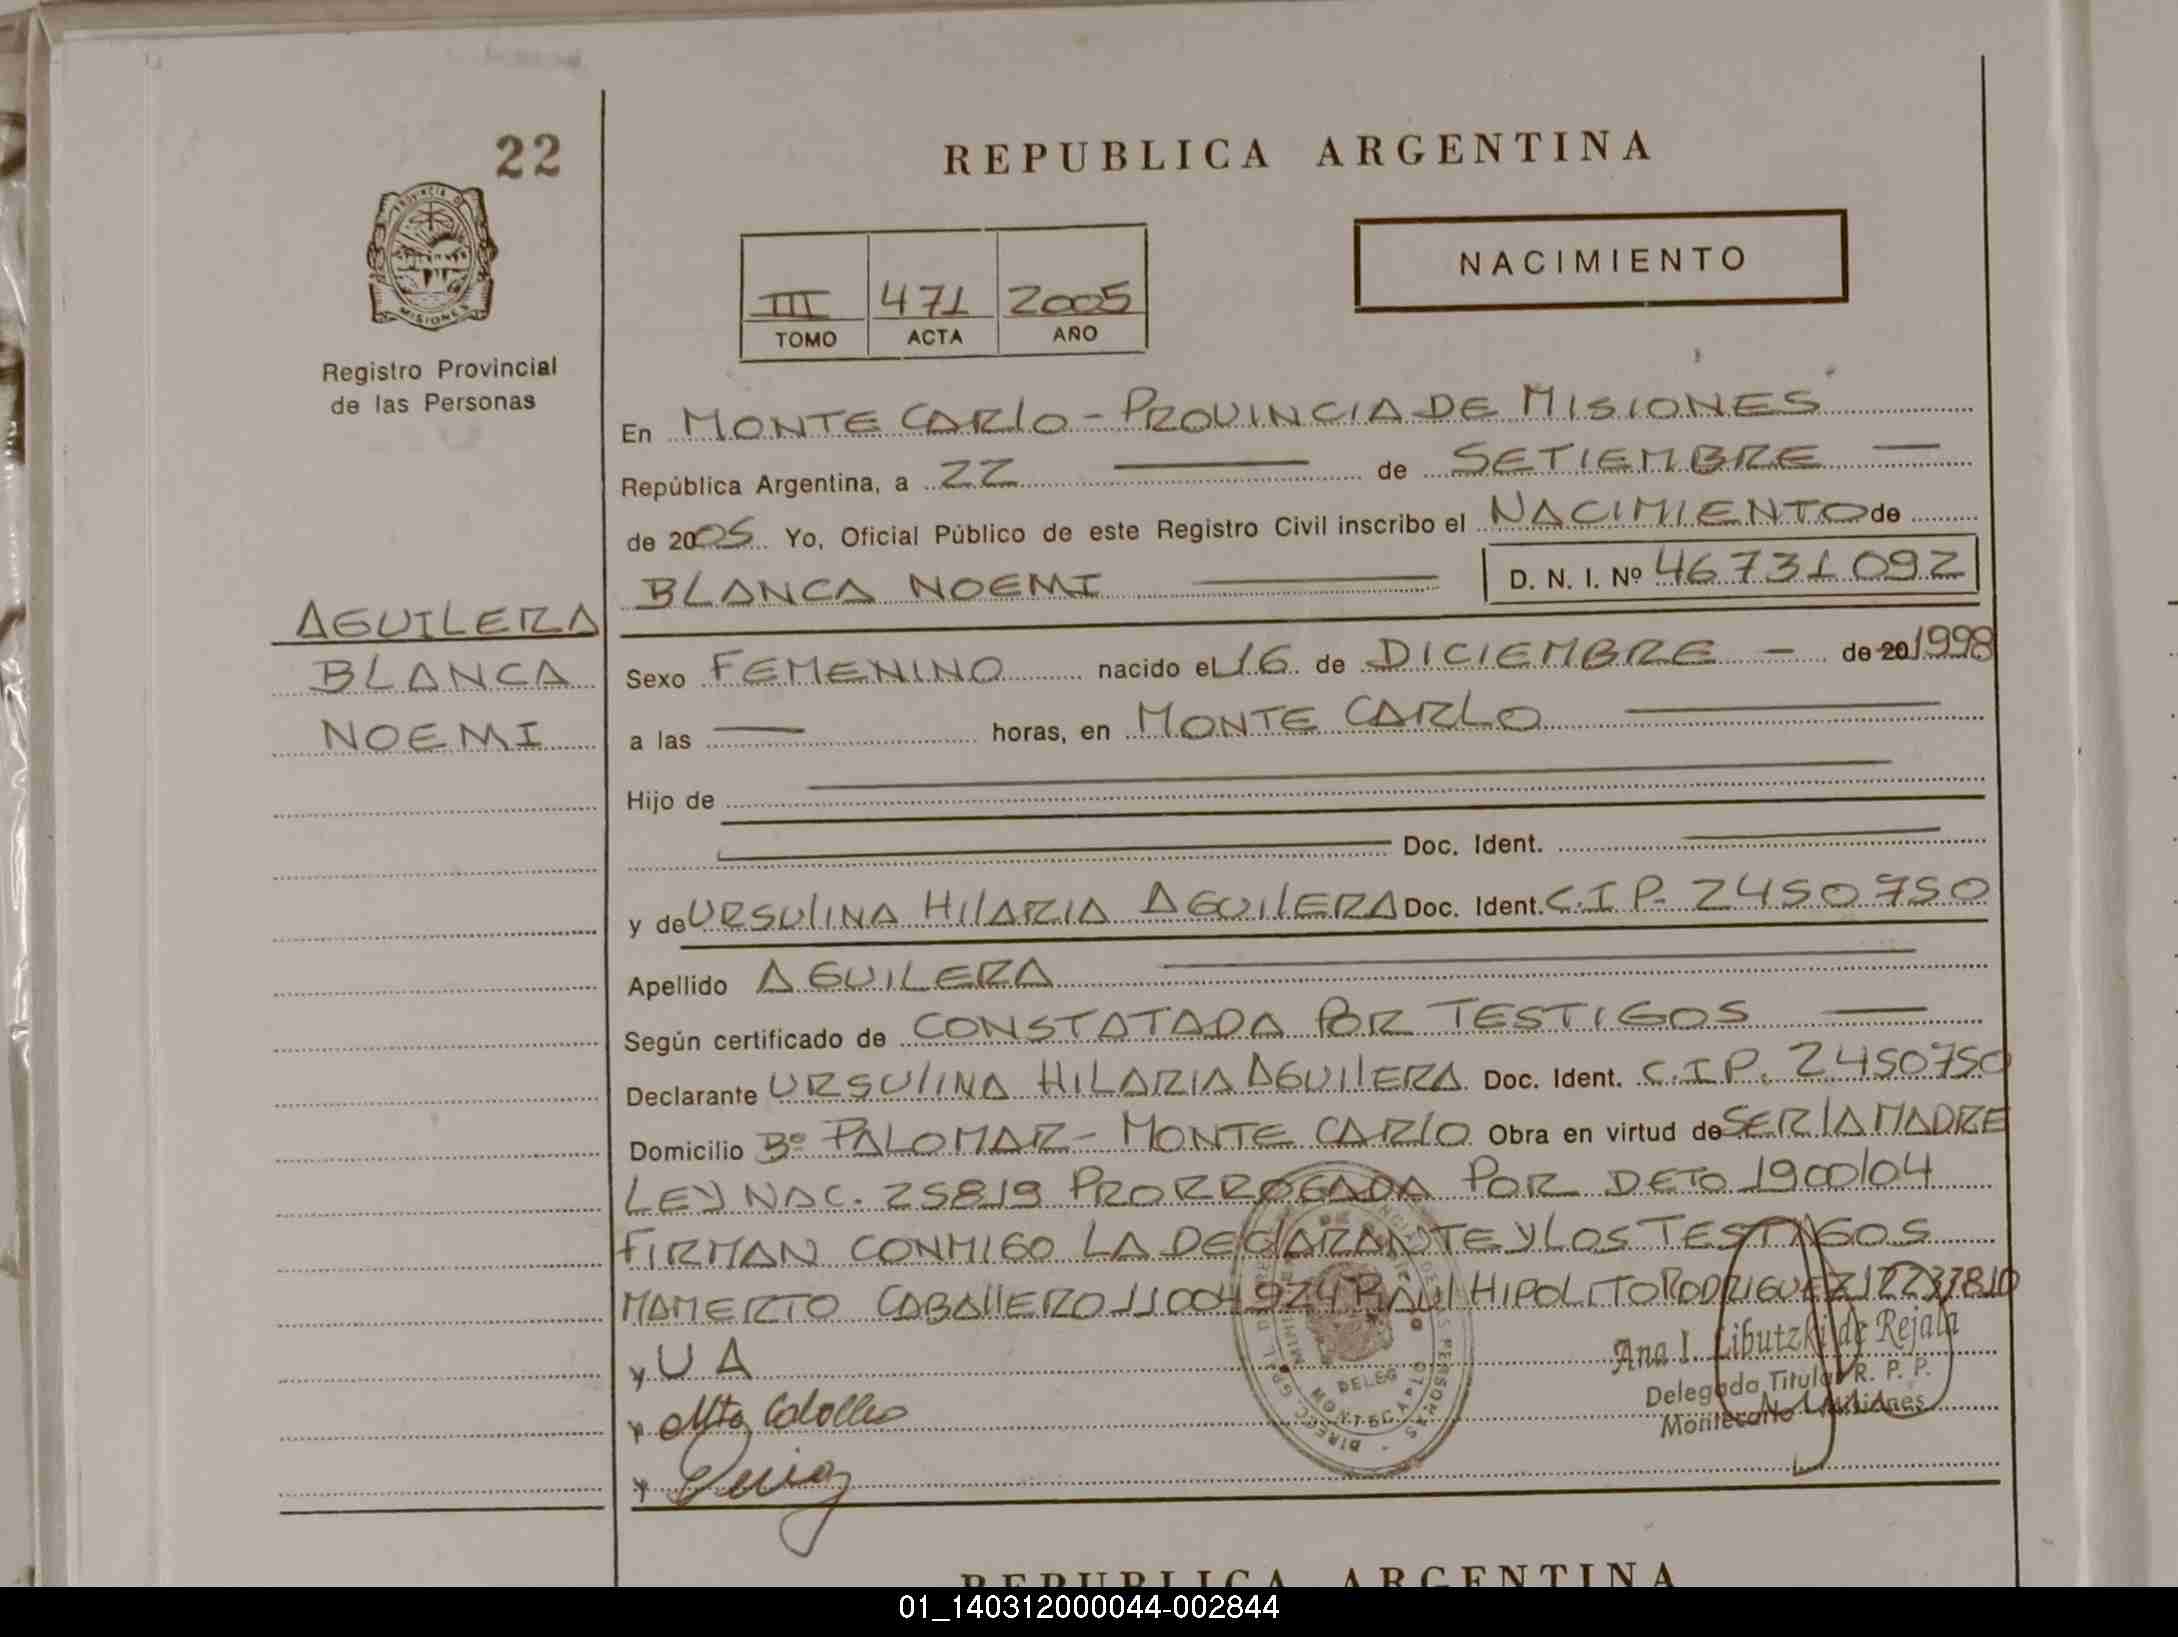 22
REPUBLICA ARGENTINA
PROVINCIA DE
MISIONES
Registro Provincial
de las Personas
III 471 2005
TOMO ACTA AÑO
NACIMIENTO
En MONTE CARLO - PROVINCIA DE MISIONES
República Argentina, a 22 de SETIEMBRE
de 2005 Yo, Oficial Público de este Registro Civil inscribo el NACIMIENTO de
BLANCA NOEMI D. N. I. Nº 46731092
AGUILERA
BLANCA
NOEMI
Sexo FEMENINO nacido el 16 de DICIEMBRE - de 20 1998
a las horas, en MONTE CARLO
Hijo de
Doc. Ident.
y de URSULINA HILARIA AGUILERA Doc. Ident. C.I.P. 2450750
Apellido AGUILERA
Según certificado de CONSTATADA POR TESTIGOS
Declarante URSULINA HILARIA AGUILERA Doc. Ident. C.I.P. 2450750
Domicilio Bº PALOMAR - MONTE CARLO Obra en virtud de SER LA MADRE
LEY NAC. 25819 PRORROGADA POR DETO 1900/04
FIRMAN CONMIGO LA DECLARANTE Y LOS TESTIGOS
MAMERTO CABALLERO 11004924 RAUL HIPOLITO RODRIGUEZ 12237810
Ana I. Libutzki de Rejala
Delegada Titular R. P. P.
Montecarlo Misiones
y U A
y
y
REPUBLICA ARGENTINA
01_140312000044-002844